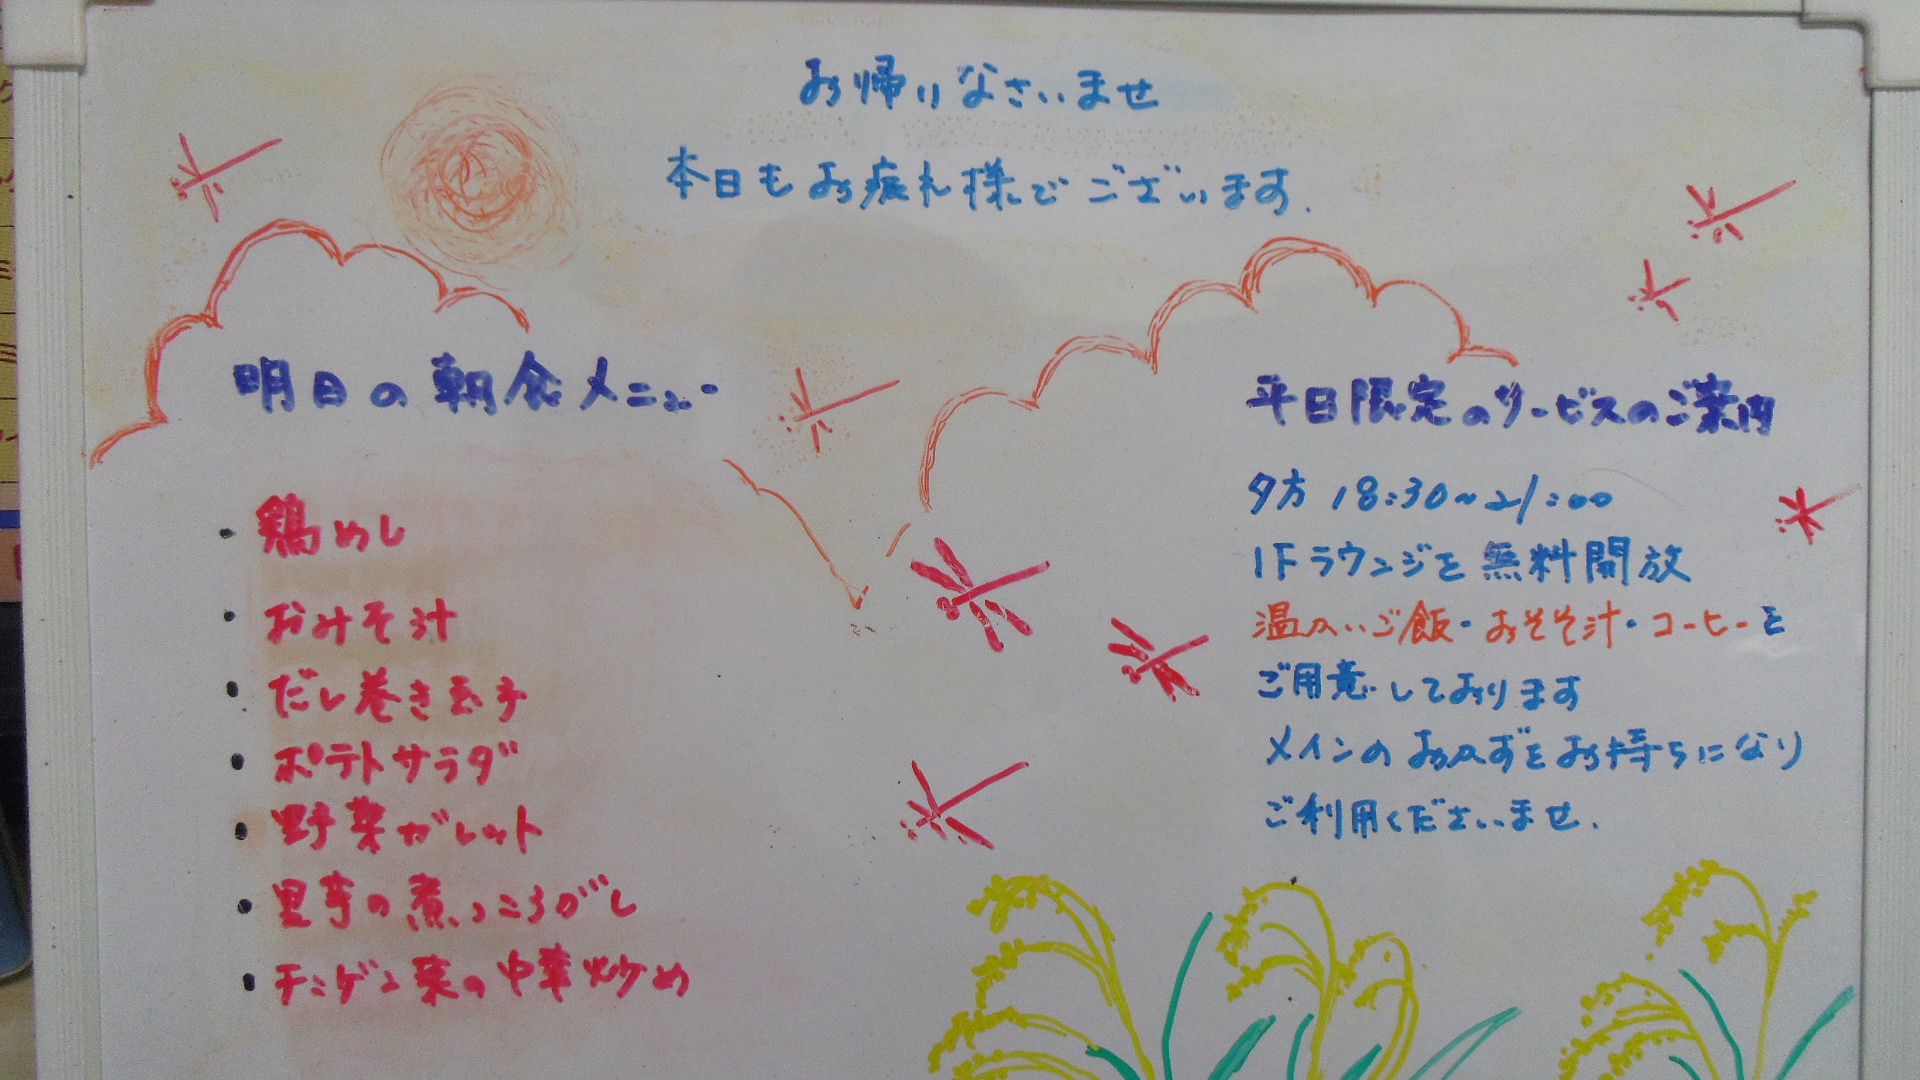 お帰りなさいませ
本日もお疲れ様でございます.
明日の朝食メニュー
・鶏めし
・おみそ汁
・だし巻き玉子
・ポテトサラダ
・野菜ガレット
・里芋の煮っころがし
・チンゲン菜の中華炒め
平日限定のサービスのご案内
夕方 18:30~21:00
1Fラウンジを無料開放
温かいご飯・おみそ汁・コーヒーを
ご用意しております
メインのおかずをお持ちになり
ご利用くださいませ.